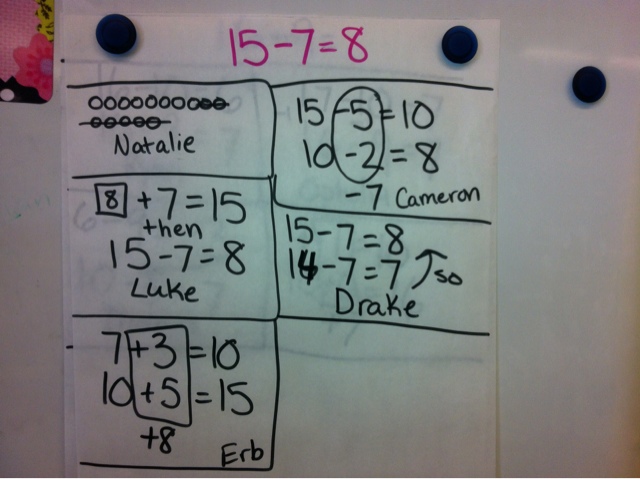 15-7=8
Natalie
15 -5=10
10 -2=8
-7 Cameron
8 +7=15
then
15-7=8
Luke
15-7=8
14-7=7 so
Drake
7+3=10
10+5=15
+8
Erb